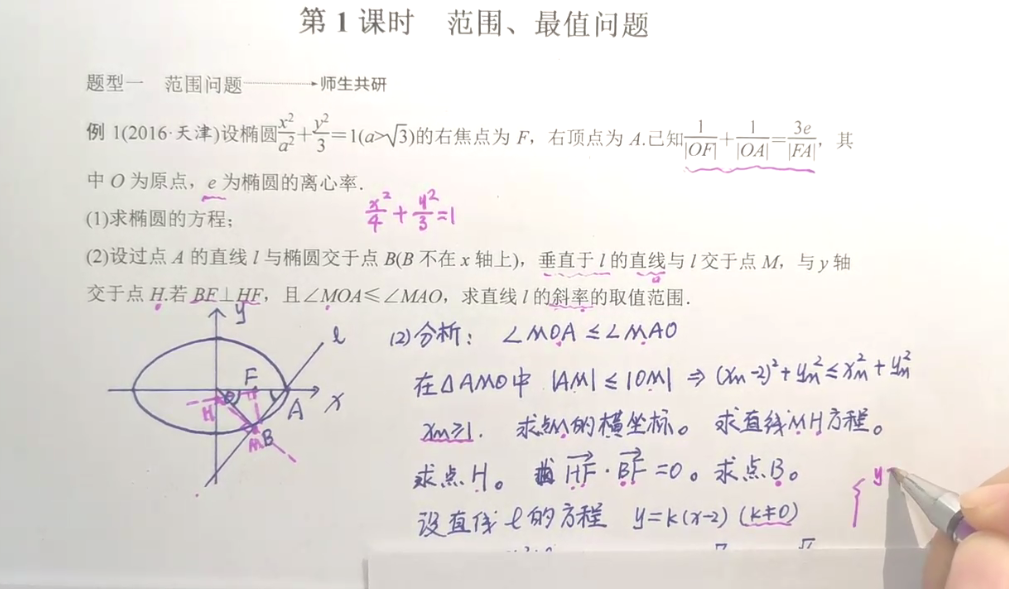 第1课时 范围、最值问题
题型一 范围问题 师生共研
例 1(2016·天津)设椭圆x²/a²+y²/3=1(a>√3)的右焦点为 F，右顶点为 A.已知1/|OF|+1/|OA|=3e/|FA|，其
中 O 为原点，e 为椭圆的离心率.
(1)求椭圆的方程；
x²/4+y²/3=1
(2)设过点 A 的直线 l 与椭圆交于点 B(B 不在 x 轴上)，垂直于 l 的直线与 l 交于点 M，与 y 轴
交于点 H.若 BF⊥HF，且∠MOA≤∠MAO，求直线 l 的斜率的取值范围.
y
l
F
H
A
x
M
B
(2)分析： ∠MOA≤∠MAO
在△AMO中 |AM|≤|OM| ⇒ (xₘ-2)²+yₘ²≤xₘ²+yₘ²
xₘ≥1. 求点M的横坐标。 求直线MH方程。
求点H。 由 HF·BF=0。求点B。
设直线l的方程 y=k(x-2) (k≠0)
y